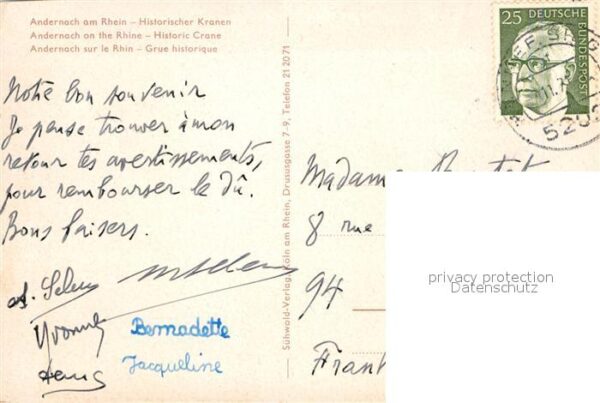 Andernach am Rhein – Historischer Kranen
Andernach on the Rhine – Historic Crane
Andernach sur le Rhin – Grue historique
25 DEUTSCHE BUNDESPOST
Notre bon souvenir
Je pense trouver à mon
retour tes avertissements,
pour rembourser le dû.
Bons baisers.
Yvonne
Bernadette
Jacqueline
Sühwald-Verlag, Köln am Rhein, Drususgasse 7-9, Telefon 21 20 71
Madame
8 rue
94
privacy protection
Datenschutz